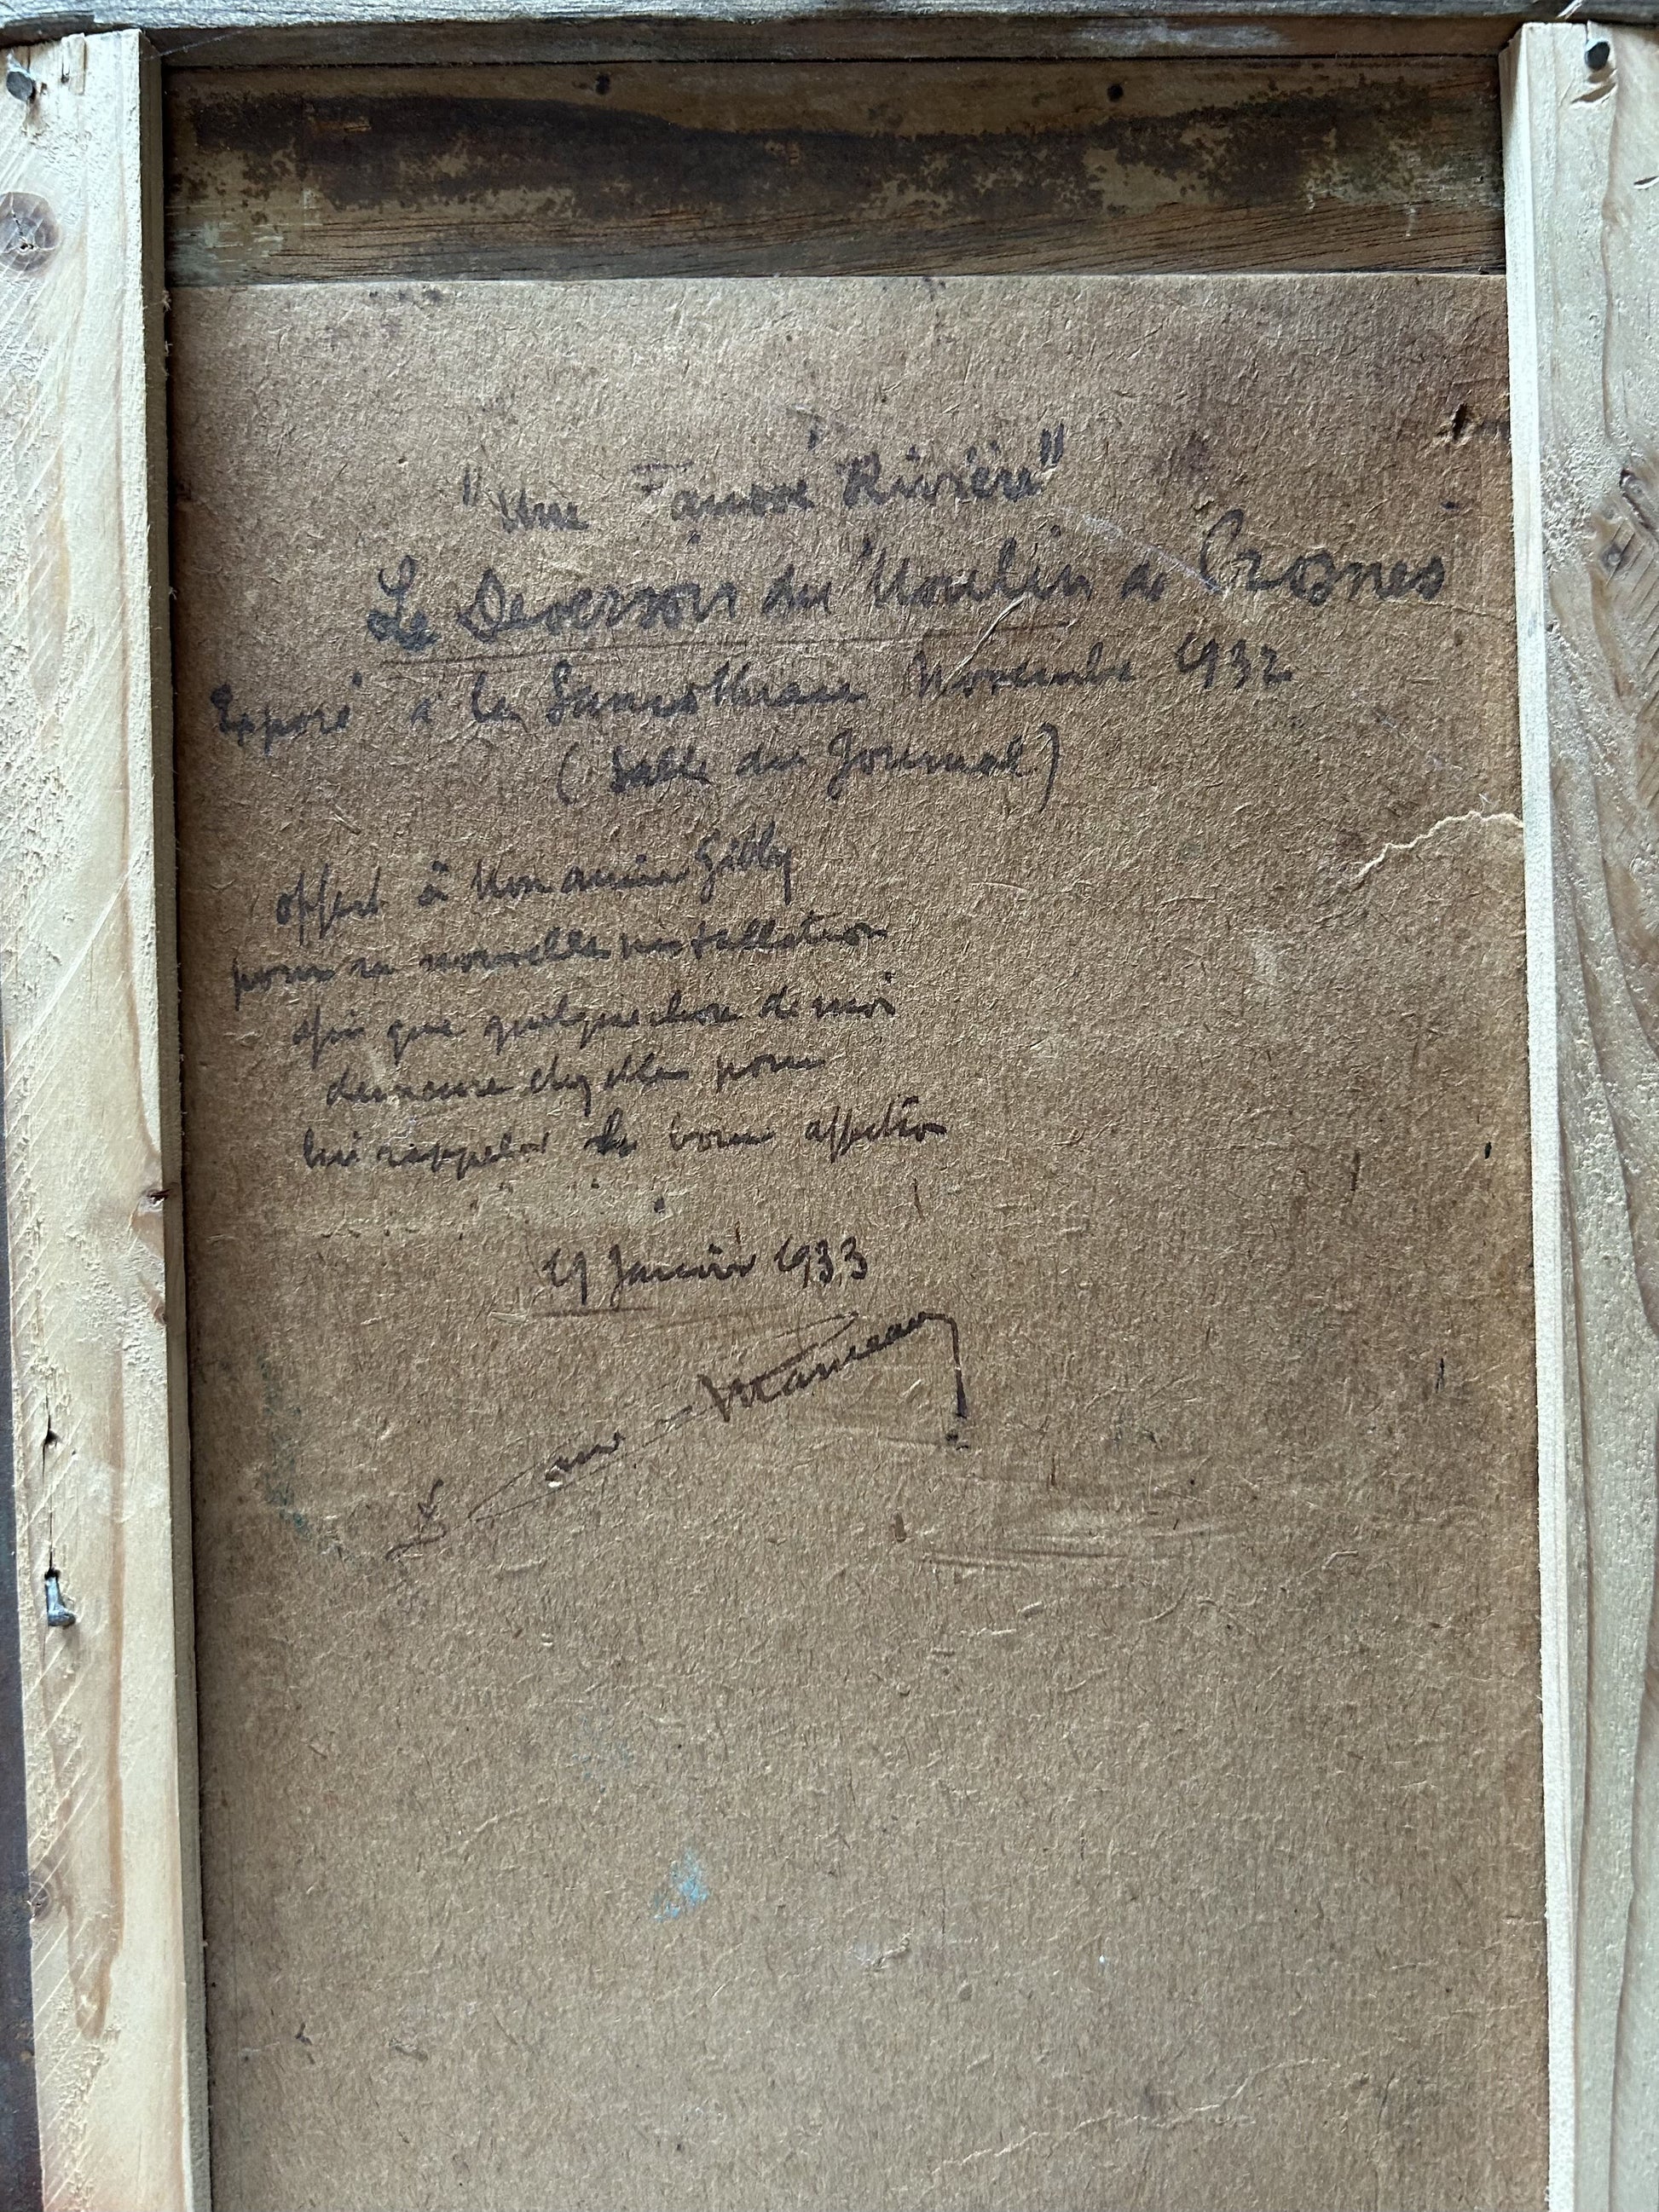 "Une Fausse Rivière"
Le Deversoir du Moulin de Crosnes
Exposé à la Samothrace Novembre 1932
(Salle du Journal)
offert à mon amie Gibby
pour sa nouvelle installation
afin que quelque chose de moi
demeure chez elle pour
lui rappeler la bonne affection
Janvier 1933